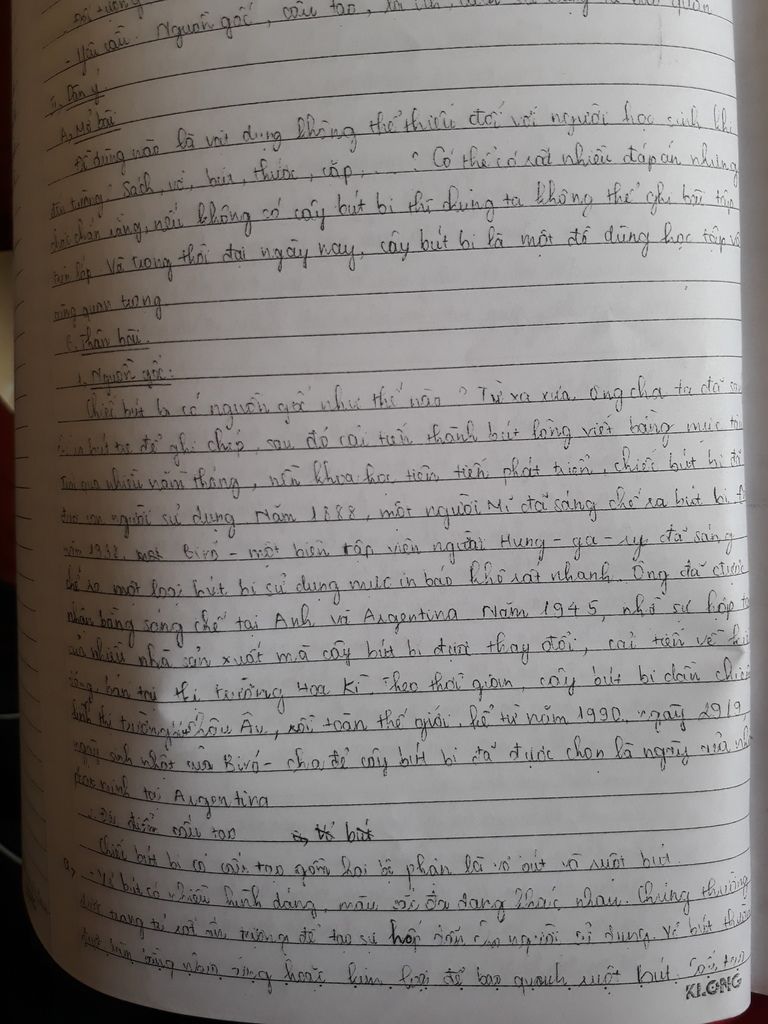 - Yêu cầu: Nguồn gốc, cấu tạo,
II, Dàn ý
A, Mở bài
Đồ dùng nào là vật dụng không thể thiếu đối với người học sinh khi
đến trường? Sách, vở, bút, thước, cặp, ...? Có thể có rất nhiều đáp án nhưng
chắc chắn rằng, nếu không có cây bút bi thì chúng ta không thể ghi bài tập
trên lớp. Và trong thời đại ngày nay, cây bút bi là một đồ dùng học tập vô
cùng quan trọng.
B. Thân bài.
1. Nguồn gốc:
Chiếc bút bi có nguồn gốc như thế nào? Từ xa xưa, ông cha ta đã
bút tre để ghi chép, sau đó cải tiến thành bút lông viết bằng mực tàu
Trải qua nhiều năm tháng, nền khoa học tiên tiến phát triển, chiếc bút bi đã
được con người sử dụng. Năm 1888, một người Mĩ đã sáng chế ra bút bi.
năm 1938, Biró - một biên tập viên người Hung-ga-ry đã sáng
chế ra một loại bút bi sử dụng mực in báo khô rất nhanh. Ông đã được
nhận bằng sáng chế tại Anh và Argentina. Năm 1945, nhờ sự hợp tác
của nhiều nhà sản xuất mà cây bút bi được thay đổi, cải tiến về
dáng, bán tại thị trường Hoa Kì. Theo thời gian, cây bút bi dần chiếm
lĩnh thị trường châu Âu, rồi toàn thế giới. Kể từ năm 1990, ngày 29/9,
ngày sinh nhật của Biró - cha đẻ cây bút bi đã được chọn là ngày của nhà
phát minh tại Argentina
Đặc điểm cấu tạo
Chiếc bút bi có cấu tạo gồm hai bộ phận là vỏ bút và ruột bút.
a, - Vỏ bút có nhiều hình dáng, màu sắc đa dạng khác nhau. Chúng thường
được trang trí rất ấn tượng để tạo sự hấp dẫn cho người sử dụng. Vỏ bút thường
được làm bằng nhựa cứng hoặc kim loại để bao quanh ruột bút. Cấu tạo
KLONG